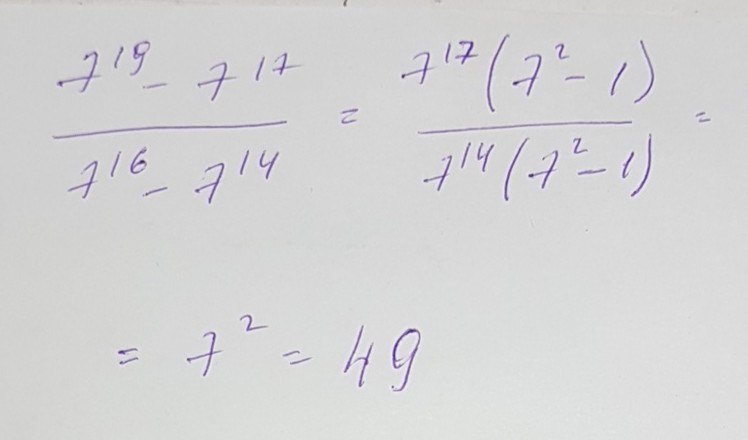 7¹⁹ - 7¹⁷ / 7¹⁶ - 7¹⁴ = 7¹⁷(7² - 1) / 7¹⁴(7² - 1) =
= 7² = 49